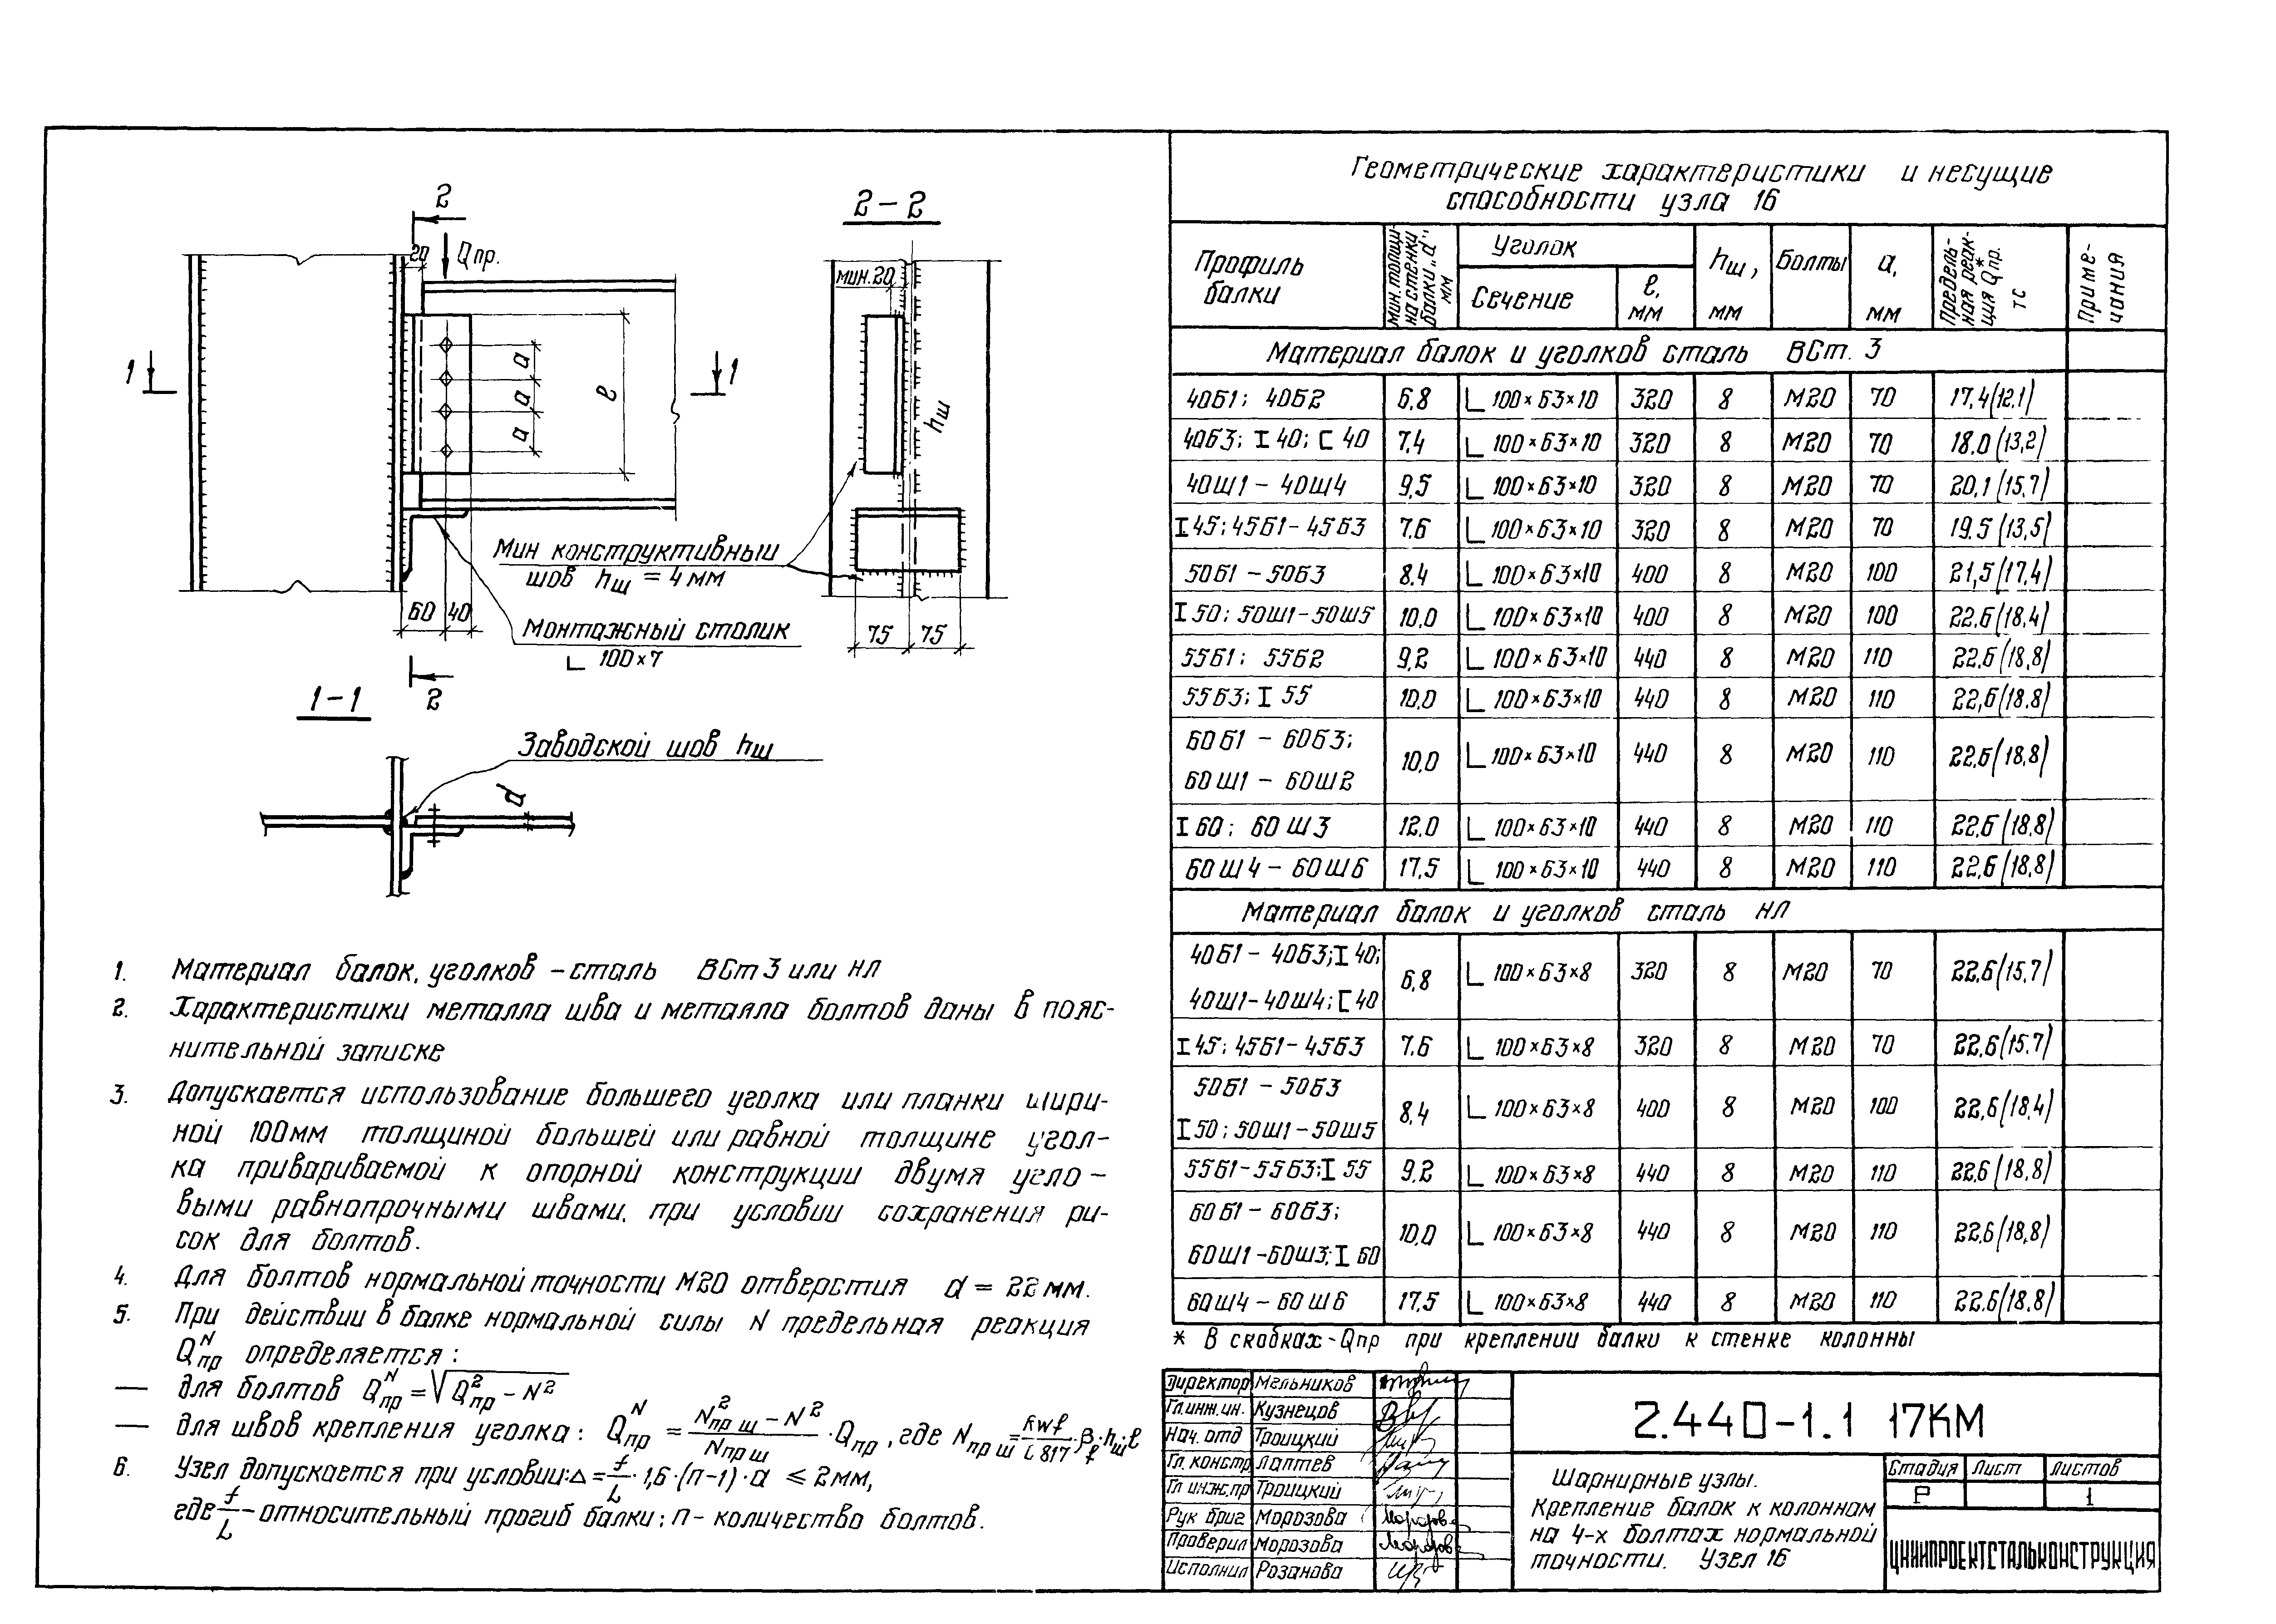 2
2 – 2
20
Qпр.
мин.20
1
1
a
a
a
ℓ
hш
Мин конструктивный
шов hш = 4 мм
60 40
75 75
Монтажный столик
L 100×7
2
1–1
Заводской шов hш
d
1. Материал балок, уголков – сталь ВСт 3 или НЛ
2. Характеристики металла шва и металла болтов даны в пояс-
нительной записке
3. Допускается использование большего уголка или планки шири-
ной 100мм толщиной большей или равной толщине угол-
ка привариваемой к опорной конструкции двумя угло–
выми равнопрочными швами, при условии сохранения ри-
сок для болтов.
4. Для болтов нормальной точности М20 отверстия d = 22 мм.
5. При действии в балке нормальной силы N предельная реакция
Qᴺпр определяется:
— для болтов Qᴺпр = √(Q²пр – N²)
— для швов крепления уголка: Qᴺпр = (N²пр ш – N²)/Nпр ш · Qпр, где Nпр ш =
6. Узел допускается при условии: Δ = f/L · 1,6 · (n–1) · a ≤ 2мм,
где f/L – относительный прогиб балки; n – количество болтов.
Геометрические характеристики и несущие
способности узла 16
Профиль балки | Мин. толщи-на стенки балки „d", мм | Уголок | hш, мм | Болты | a, мм | Предель-ная реак-ция Qпр.* тс | Приме-чания
Сечение | ℓ, мм
Материал балок и уголков сталь ВСт. 3
40Б1; 40Б2 | 6,8 | L 100×63×10 | 320 | 8 | М20 | 70 | 17,4(12,1)
40Б3; I 40; [ 40 | 7,4 | L 100×63×10 | 320 | 8 | М20 | 70 | 18.0 (13,2)
40Ш1 – 40Ш4 | 9,5 | L 100×63×10 | 320 | 8 | М20 | 70 | 20,1 (15,7)
I 45; 45Б1 – 45Б3 | 7.6 | L 100×63×10 | 320 | 8 | М20 | 70 | 19.5 (13,5)
50Б1 – 50Б3 | 8.4 | L 100×63×10 | 400 | 8 | М20 | 100 | 21,5 (17,4)
I 50; 50Ш1 – 50Ш5 | 10,0 | L 100×63×10 | 400 | 8 | М20 | 100 | 22,6 (18,4)
55Б1; 55Б2 | 9,2 | L 100×63×10 | 440 | 8 | М20 | 110 | 22,6 (18,8)
55Б3; I 55 | 10,0 | L 100×63×10 | 440 | 8 | М20 | 110 | 22,6 (18.8)
60Б1 – 60Б3;
60Ш1 – 60Ш2 | 10,0 | L 100×63×10 | 440 | 8 | М20 | 110 | 22,6 (18,8)
I 60; 60Ш3 | 12.0 | L 100×63×10 | 440 | 8 | М20 | 110 | 22,6 (18,8)
60Ш4 – 60Ш6 | 17,5 | L 100×63×10 | 440 | 8 | М20 | 110 | 22,6 (18,8)
Материал балок и уголков сталь НЛ
40Б1 – 40Б3; I 40;
40Ш1-40Ш4; [ 40 | 6,8 | L 100×63×8 | 320 | 8 | М20 | 70 | 22,6 (15,7)
I 45; 45Б1 – 45Б3 | 7.6 | L 100×63×8 | 320 | 8 | М20 | 70 | 22,6 (15.7)
50Б1 – 50Б3
I 50; 50Ш1 – 50Ш5 | 8,4 | L 100×63×8 | 400 | 8 | М20 | 100 | 22,6 (18,4)
55Б1 – 55Б3; I 55 | 9,2 | L 100×63×8 | 440 | 8 | М20 | 110 | 22,6 (18,8)
60Б1 – 60Б3;
60Ш1 – 60Ш3; I 60 | 10,0 | L 100×63×8 | 440 | 8 | М20 | 110 | 22,6 (18,8)
60Ш4 – 60Ш6 | 17,5 | L 100×63×8 | 440 | 8 | М20 | 110 | 22.6 (18,8)
* В скобках – Qпр при креплении балки к стенке колонны
Директор Мельников
Гл.инж.ин. Кузнецов
Нач. отд Троицкий
Гл. констр Лаптев
Гл инж.пр Троицкий
Рук бриг Морозова
Проверил Морозова
Исполнил Розанова
2.440–1.1 17КМ
Шарнирные узлы.
Крепление балок к колоннам
на 4-х болтах нормальной
точности. Узел 16
Стадия Лист Листов
Р 1
ЦНИИПРОЕКТСТАЛЬКОНСТРУКЦИЯ